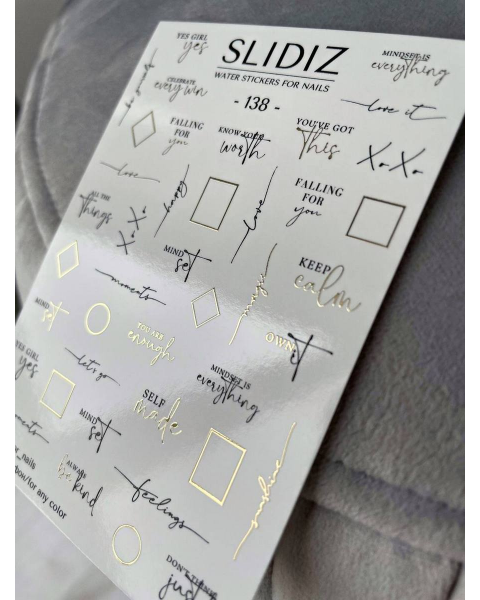 YES GIRL
yes
SLIDIZ
WATER STICKERS FOR NAILS
- 138 -
MINDSET IS
everything
CELEBRATE
every win
love it
FALLING
FOR
you
KNOW YOUR
worth
YOU'VE GOT
This
X. X.
love
happy
love
FALLING
FOR
you
ALL THE
things
X. X.
MIND
set
KEEP
calm
moments
MIND
set
YOU ARE
enough
OWN
it
YES GIRL
yes
let's go
MINDSET IS
everything
SELF
made
MIND
set
sunshine
ALWAYS
be kind
feelings
_nails
for any color
DON'T THINK
just